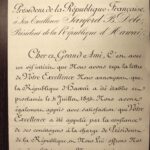 Président de la République Française,
à Son Excellence Sanford B. Dole,
Président de la République d'Hawaï.
Cher et Grand Ami, C'est avec
un vif intérêt que Nous avons reçu la lettre
de Votre Excellence Nous annonçant, que
la République d'Hawaï a été établie et
proclamée le 4 Juillet 1894. Nous avons
également appris avec satisfaction que Votre
Excellence a été appelée par la confiance
de ses concitoyens à la charge de Président
de la République, en Nous